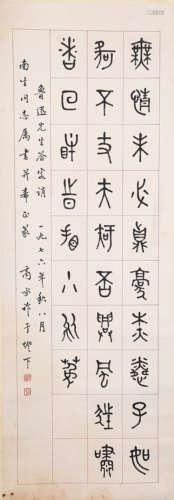 無情未必真豪杰憐子如
何不丈夫知否興風狂嘯
者回眸時看小於菟
魯迅先生答客誚 一九七六年秋八月
南生同志属書并希正篆 商承祚于燈下